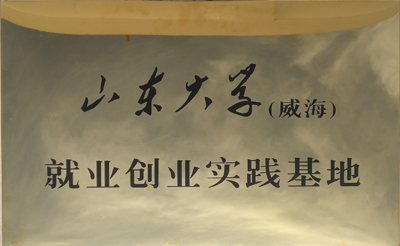 山东大学(威海)
就业创业实践基地